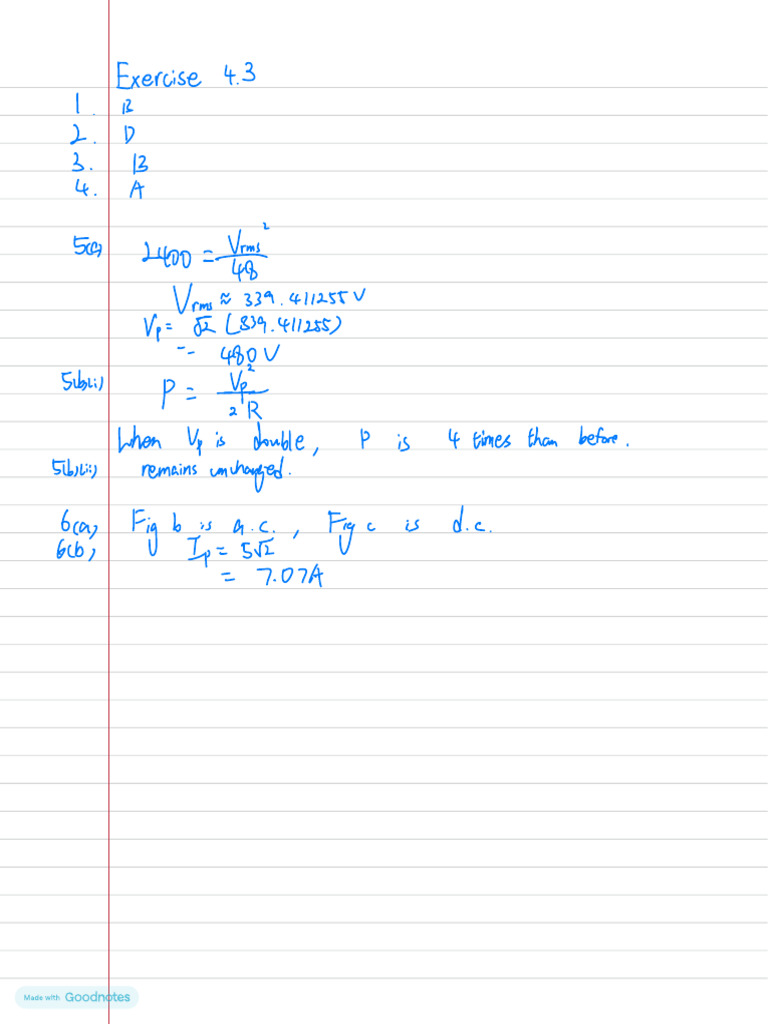 Exercise 4.3
1. B
2. D
3. B
4. A
5(a) 2400 = Vrms² / 48
Vrms ≈ 339.411255 V
Vp = √2 (339.411255)
= 480 V
5(b)(i) P = Vp² / 2R
When Vp is double, P is 4 times than before.
5(b)(ii) remains unchanged.
6(a) Fig b is a.c., Fig c is d.c.
6(b) Ip = 5√2
= 7.07A
Made with Goodnotes